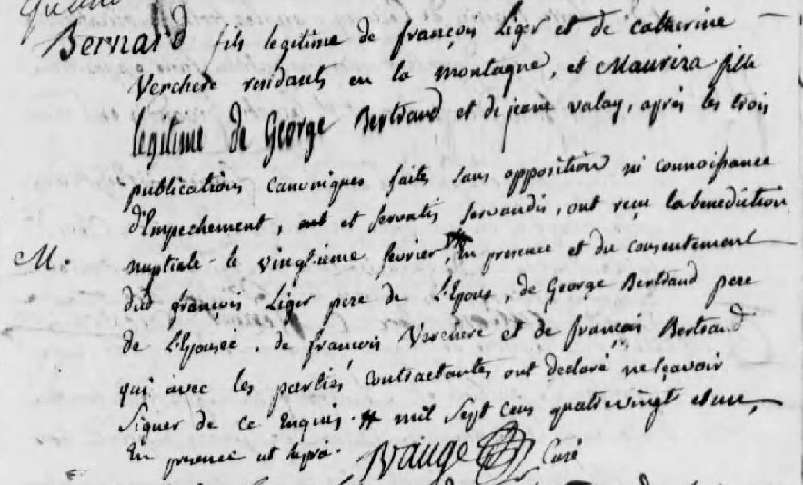 Bernard fils legitime de françois Liger et de catherine
Verchere residants en la montagne, et Mauriza fille
legitime de George Bertrand et de jeane valay, après les trois
publications canoniques faites sans opposition ni connoissance
d'Empechement, aut et servatis servandis, ont reçu la benediction
M. nuptiale le vingtieme fevrier # En presence et du consentement
dud françois Liger pere de L'Epoux, de George Bertrand pere
de L'Epousée, de françois Verchere et de françois Bertrand
qui avec les parties contractantes ont declaré ne sçavoir
signer de ce Enquis. # mil sept cens quatrevingt et une,
En presence ut supra. Curé